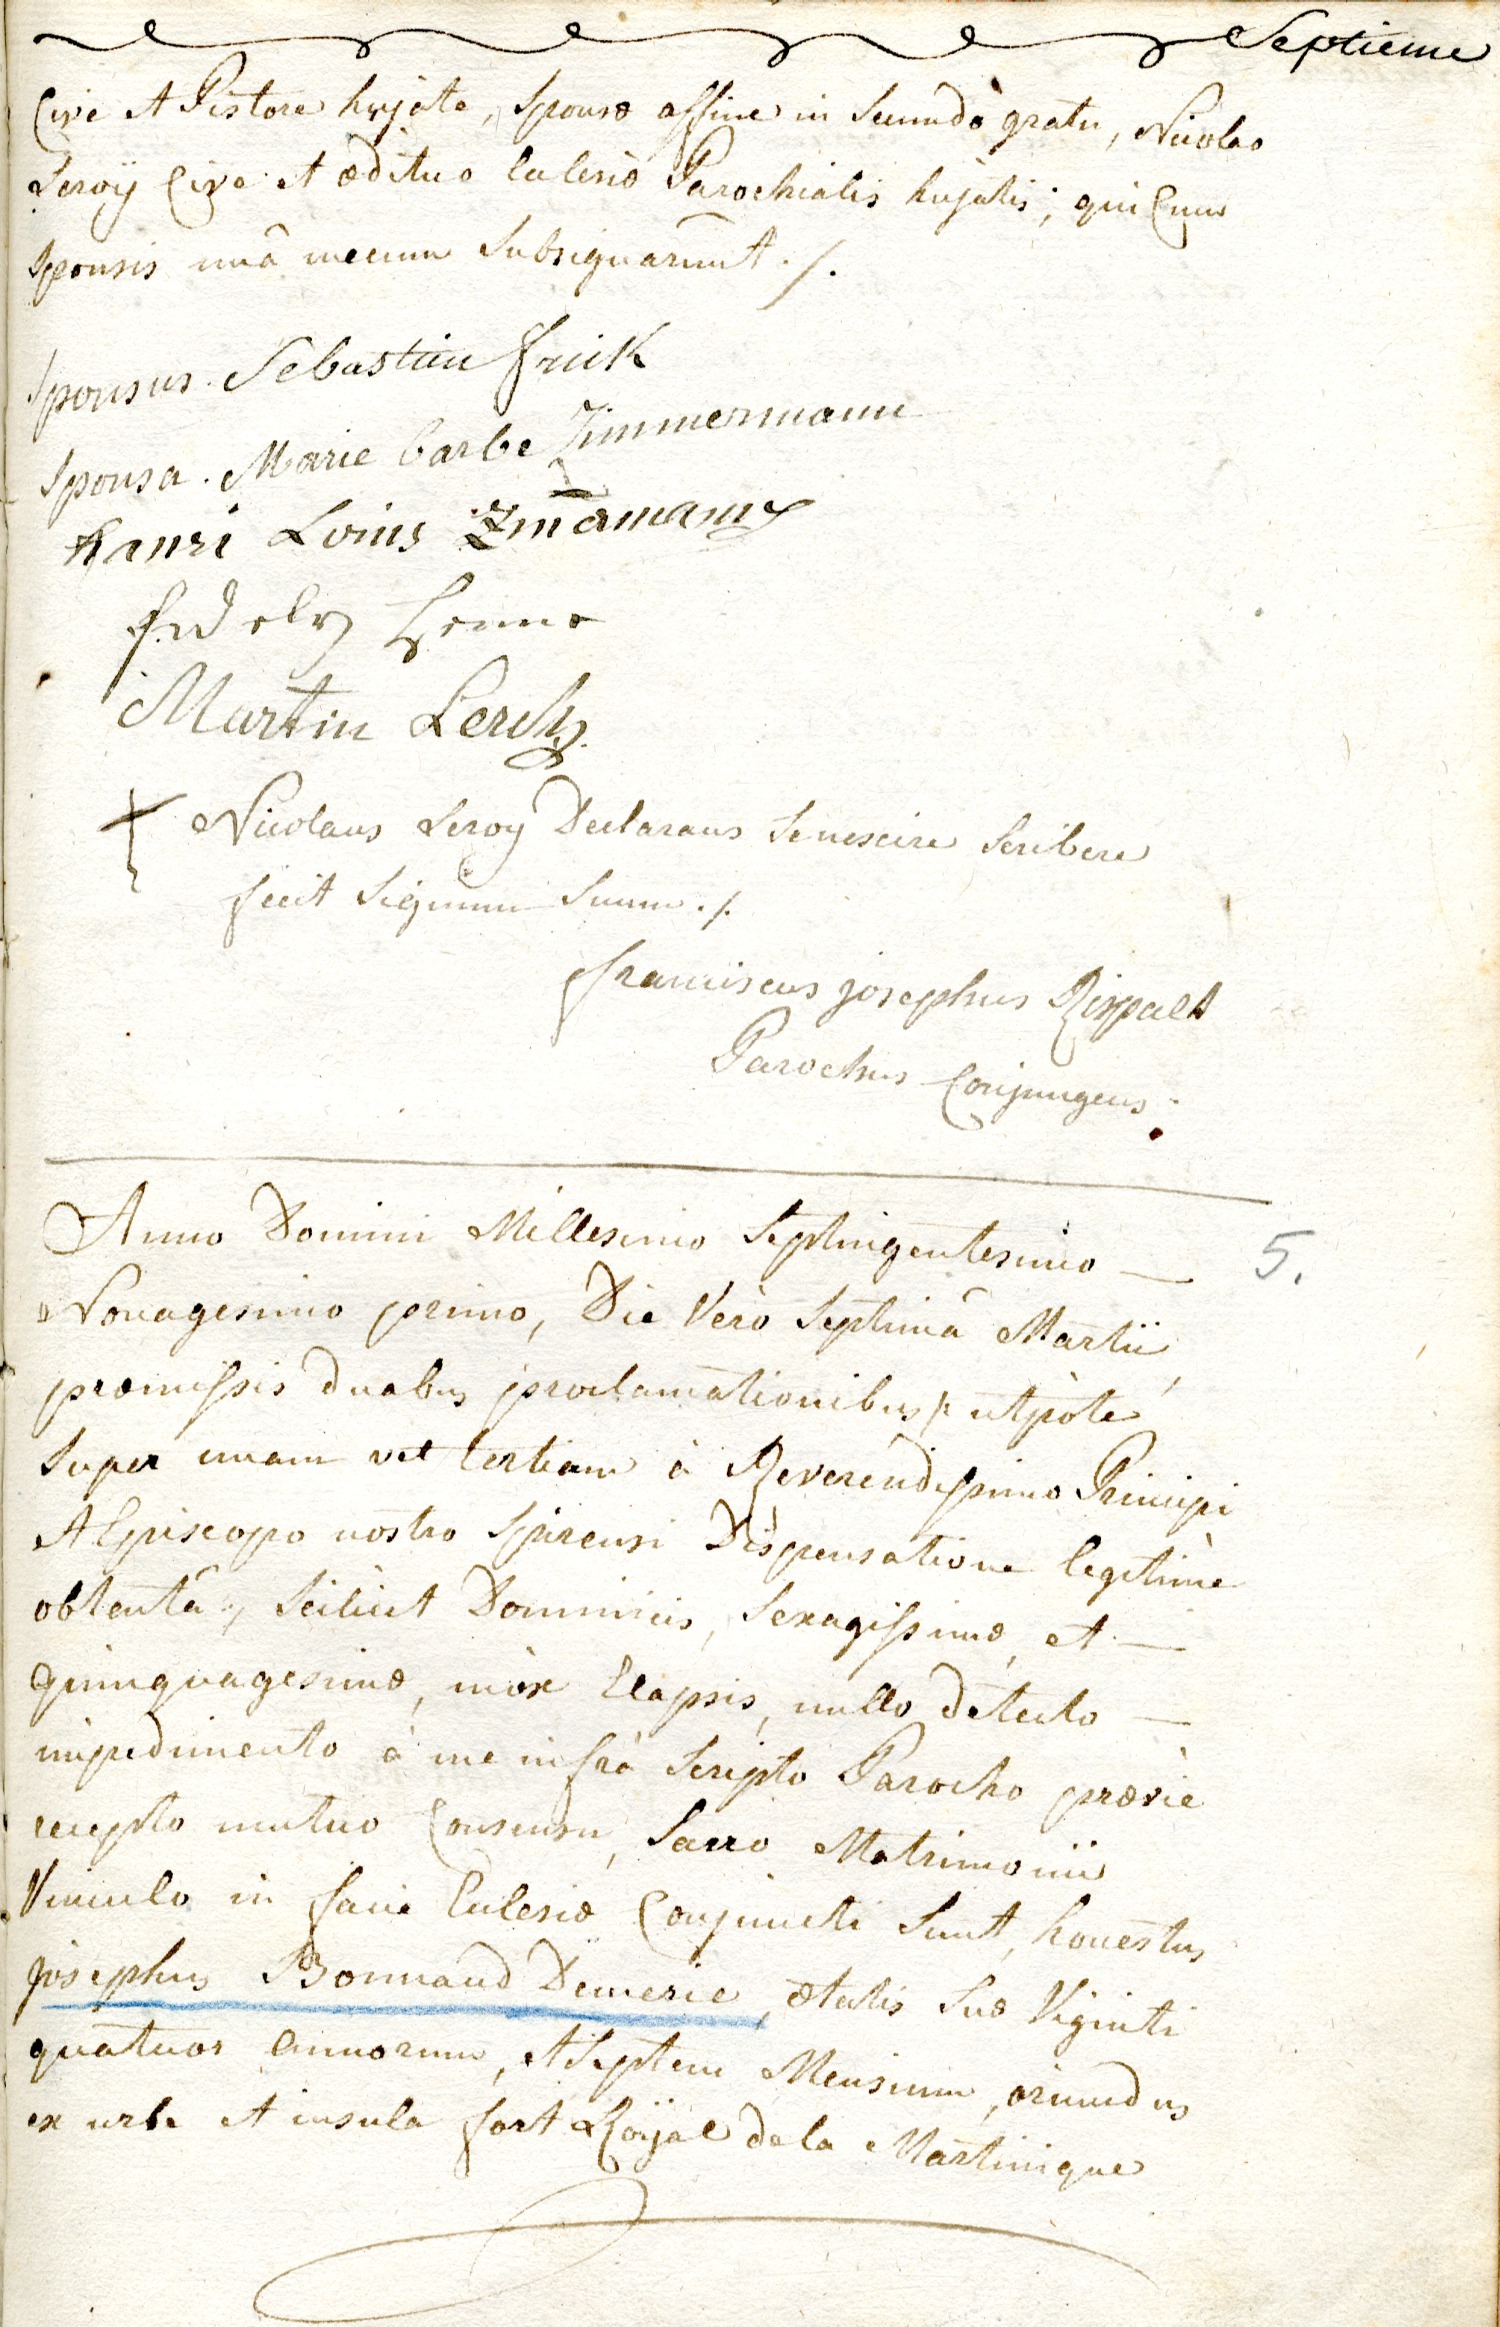 Septieme
Cive et Pistore hujate, Sponsæ affine in Secundo gratu, Nicolao
Leroÿ Cive et ædituo Ecclesiæ Parochialis hujatis; qui Cum
Sponsis unâ mecum Subsignarunt ./.
Sponsus. Sebastian frick
Sponsa. Marie barbe Zimmermann
henri Louis
Martin Lerch
Nicolaus Leroy Declarans Se nescire Scribere
fecit Signum Suum ./.
franciscus josephus
Parochus Conjungens.
Anno Domini Millesimo Septingentesimo —
5.
Nonagesimo primo, Die Vero Septimâ Martii,
præmissis duabus proclamationibus /: utpote
Super unam vel tertiam à Reverendissimo Principi
et Episcopo nostro Spirensi Dispensatione legitimè
obtentâ :/ Scilicet Dominicis, Sexagissimæ, et —
Quinquagesimæ, mòx Elapsis, nullo detecto —
impedimento à me infrà Scripto Parocho prævie
recepto mutuo Consensu, Sacro Matrimonii
Vinculo in facie Ecclesiæ Conjuncti Sunt, honestus
josephus Bonnaud Demerie, ætatis Suæ Viginti
quatuor annorum, et Septem Mensium, oriundus
ex urbe et insula fort Roÿal de la Martinique